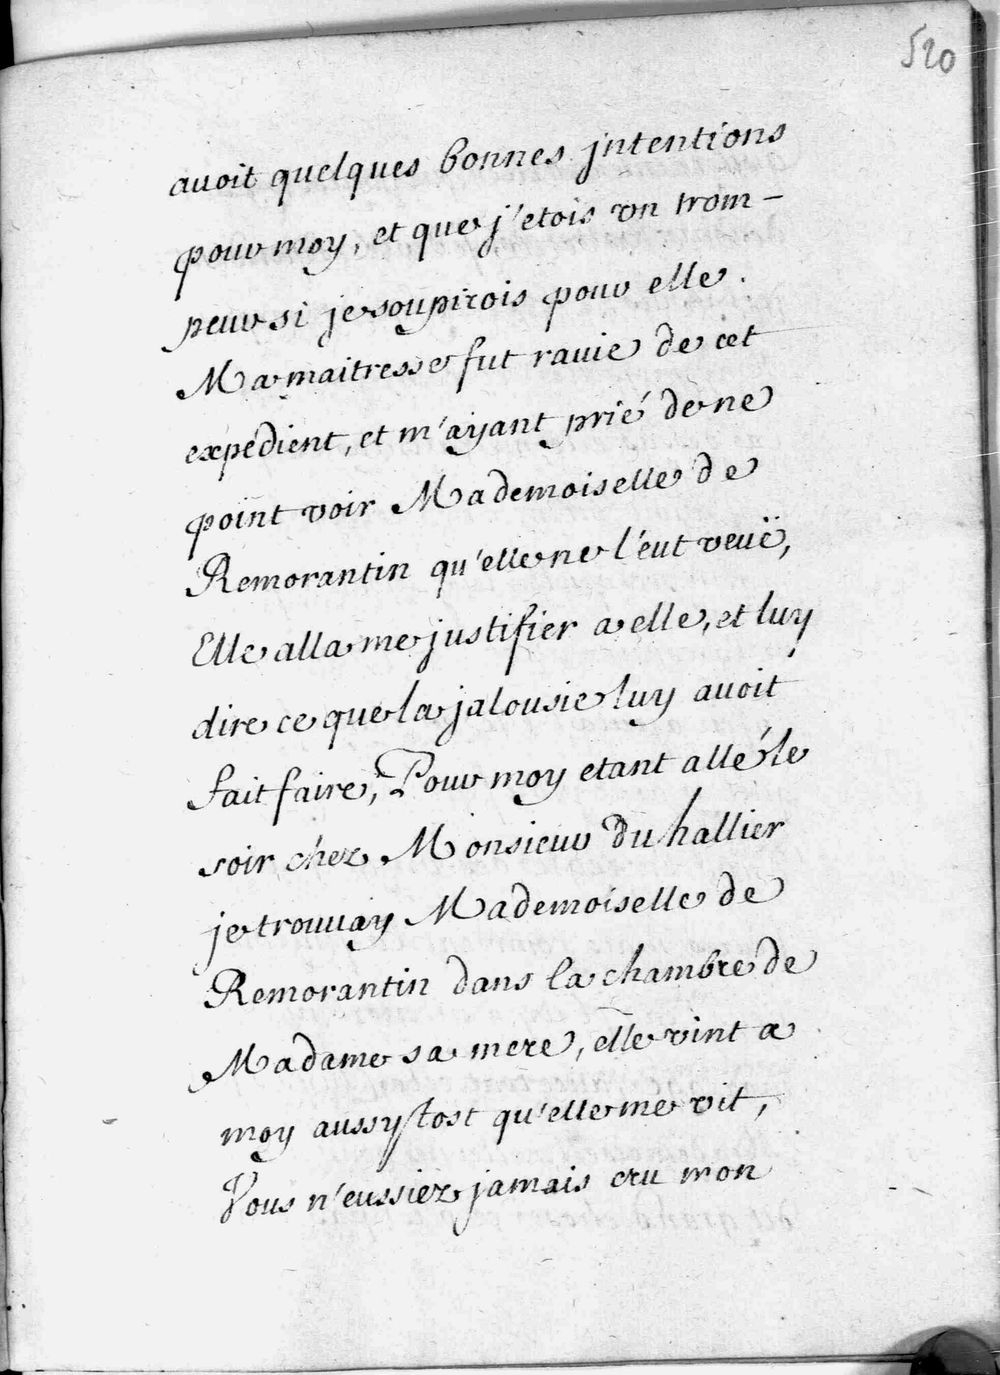 520
avoit quelques bonnes jntentions
pour moy, et que j'etois vn trom-
peur si je soupirois pour elle.
Ma maitresse fut ravie de cet
expédient, et m'ayant prié de ne
point voir Mademoiselle de
Remorantin qu'elle ne l'eut veuë,
Elle alla me justifier a elle, et luy
dire ce que la jalousie luy avoit
fait faire, Pour moy etant allé le
soir chez Monsieur Du hallier
je trouvay Mademoiselle de
Remorantin dans la chambre de
Madame sa mere, elle vint a
moy aussytost qu'elle me vit,
Vous n'eussiez jamais cru mon